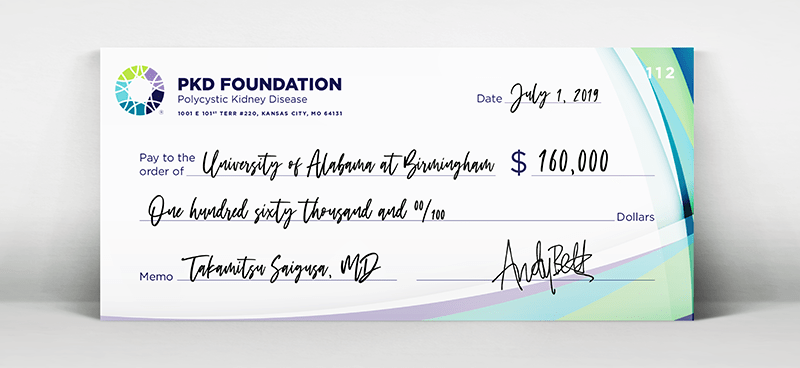 112
PKD FOUNDATION
Polycystic Kidney Disease
1001 E 101ST TERR #220, KANSAS CITY, MO 64131
Date July 1, 2019
Pay to the
order of University of Alabama at Birmingham $ 160,000
One hundred sixty thousand and 00/100 Dollars
Memo Takamitsu Saigusa, MD
AndyBetts